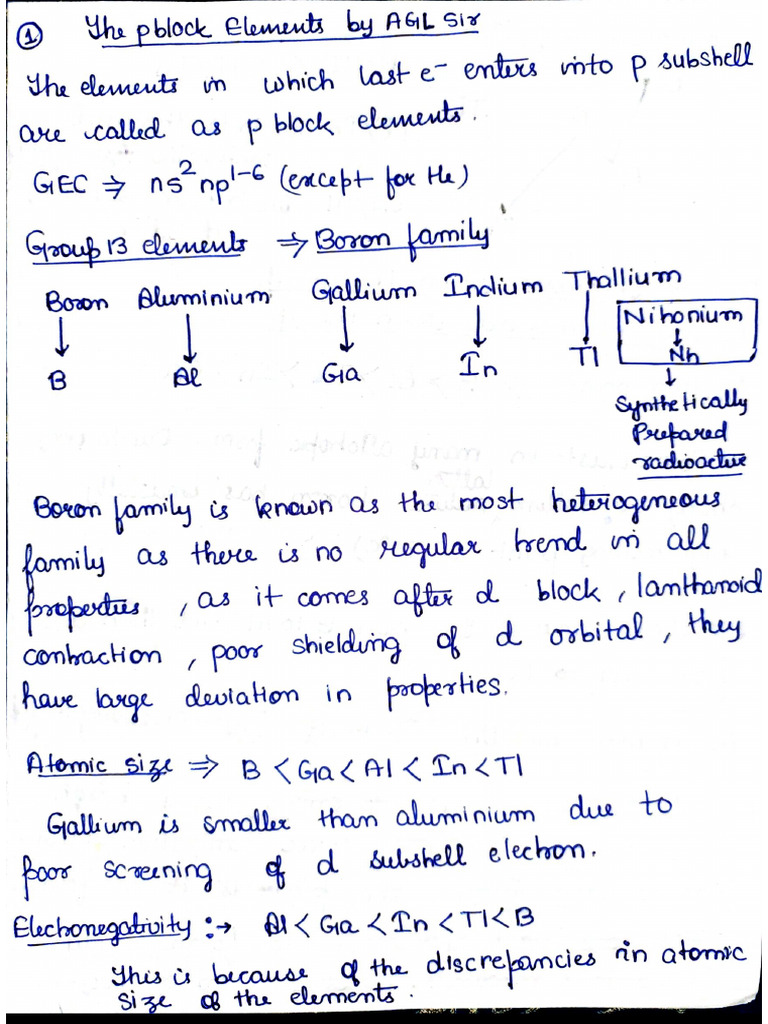 ① The p block Elements by AGL Sir
The elements in which last e⁻ enters into p subshell
are called as p block elements.
GEC ⇒ ns²np¹⁻⁶ (except for He)
Group 13 elements ⇒ Boron family
Boron Aluminium Gallium Indium Thallium
↓ ↓ ↓ ↓ ↓
B Al Ga In Tl
Nihonium
↓
Nh
↓
Synthetically
Prepared
radioactive
Boron family is known as the most heterogeneous
family as there is no regular trend in all
properties, as it comes after d block, lanthanoid
contraction, poor shielding of d orbital, they
have large deviation in properties.
Atomic size ⇒ B < Ga < Al < In < Tl
Gallium is smaller than aluminium due to
poor screening of d subshell electron.
Electronegativity :→ Al < Ga < In < Tl < B
This is because of the discrepancies in atomic
size of the elements.